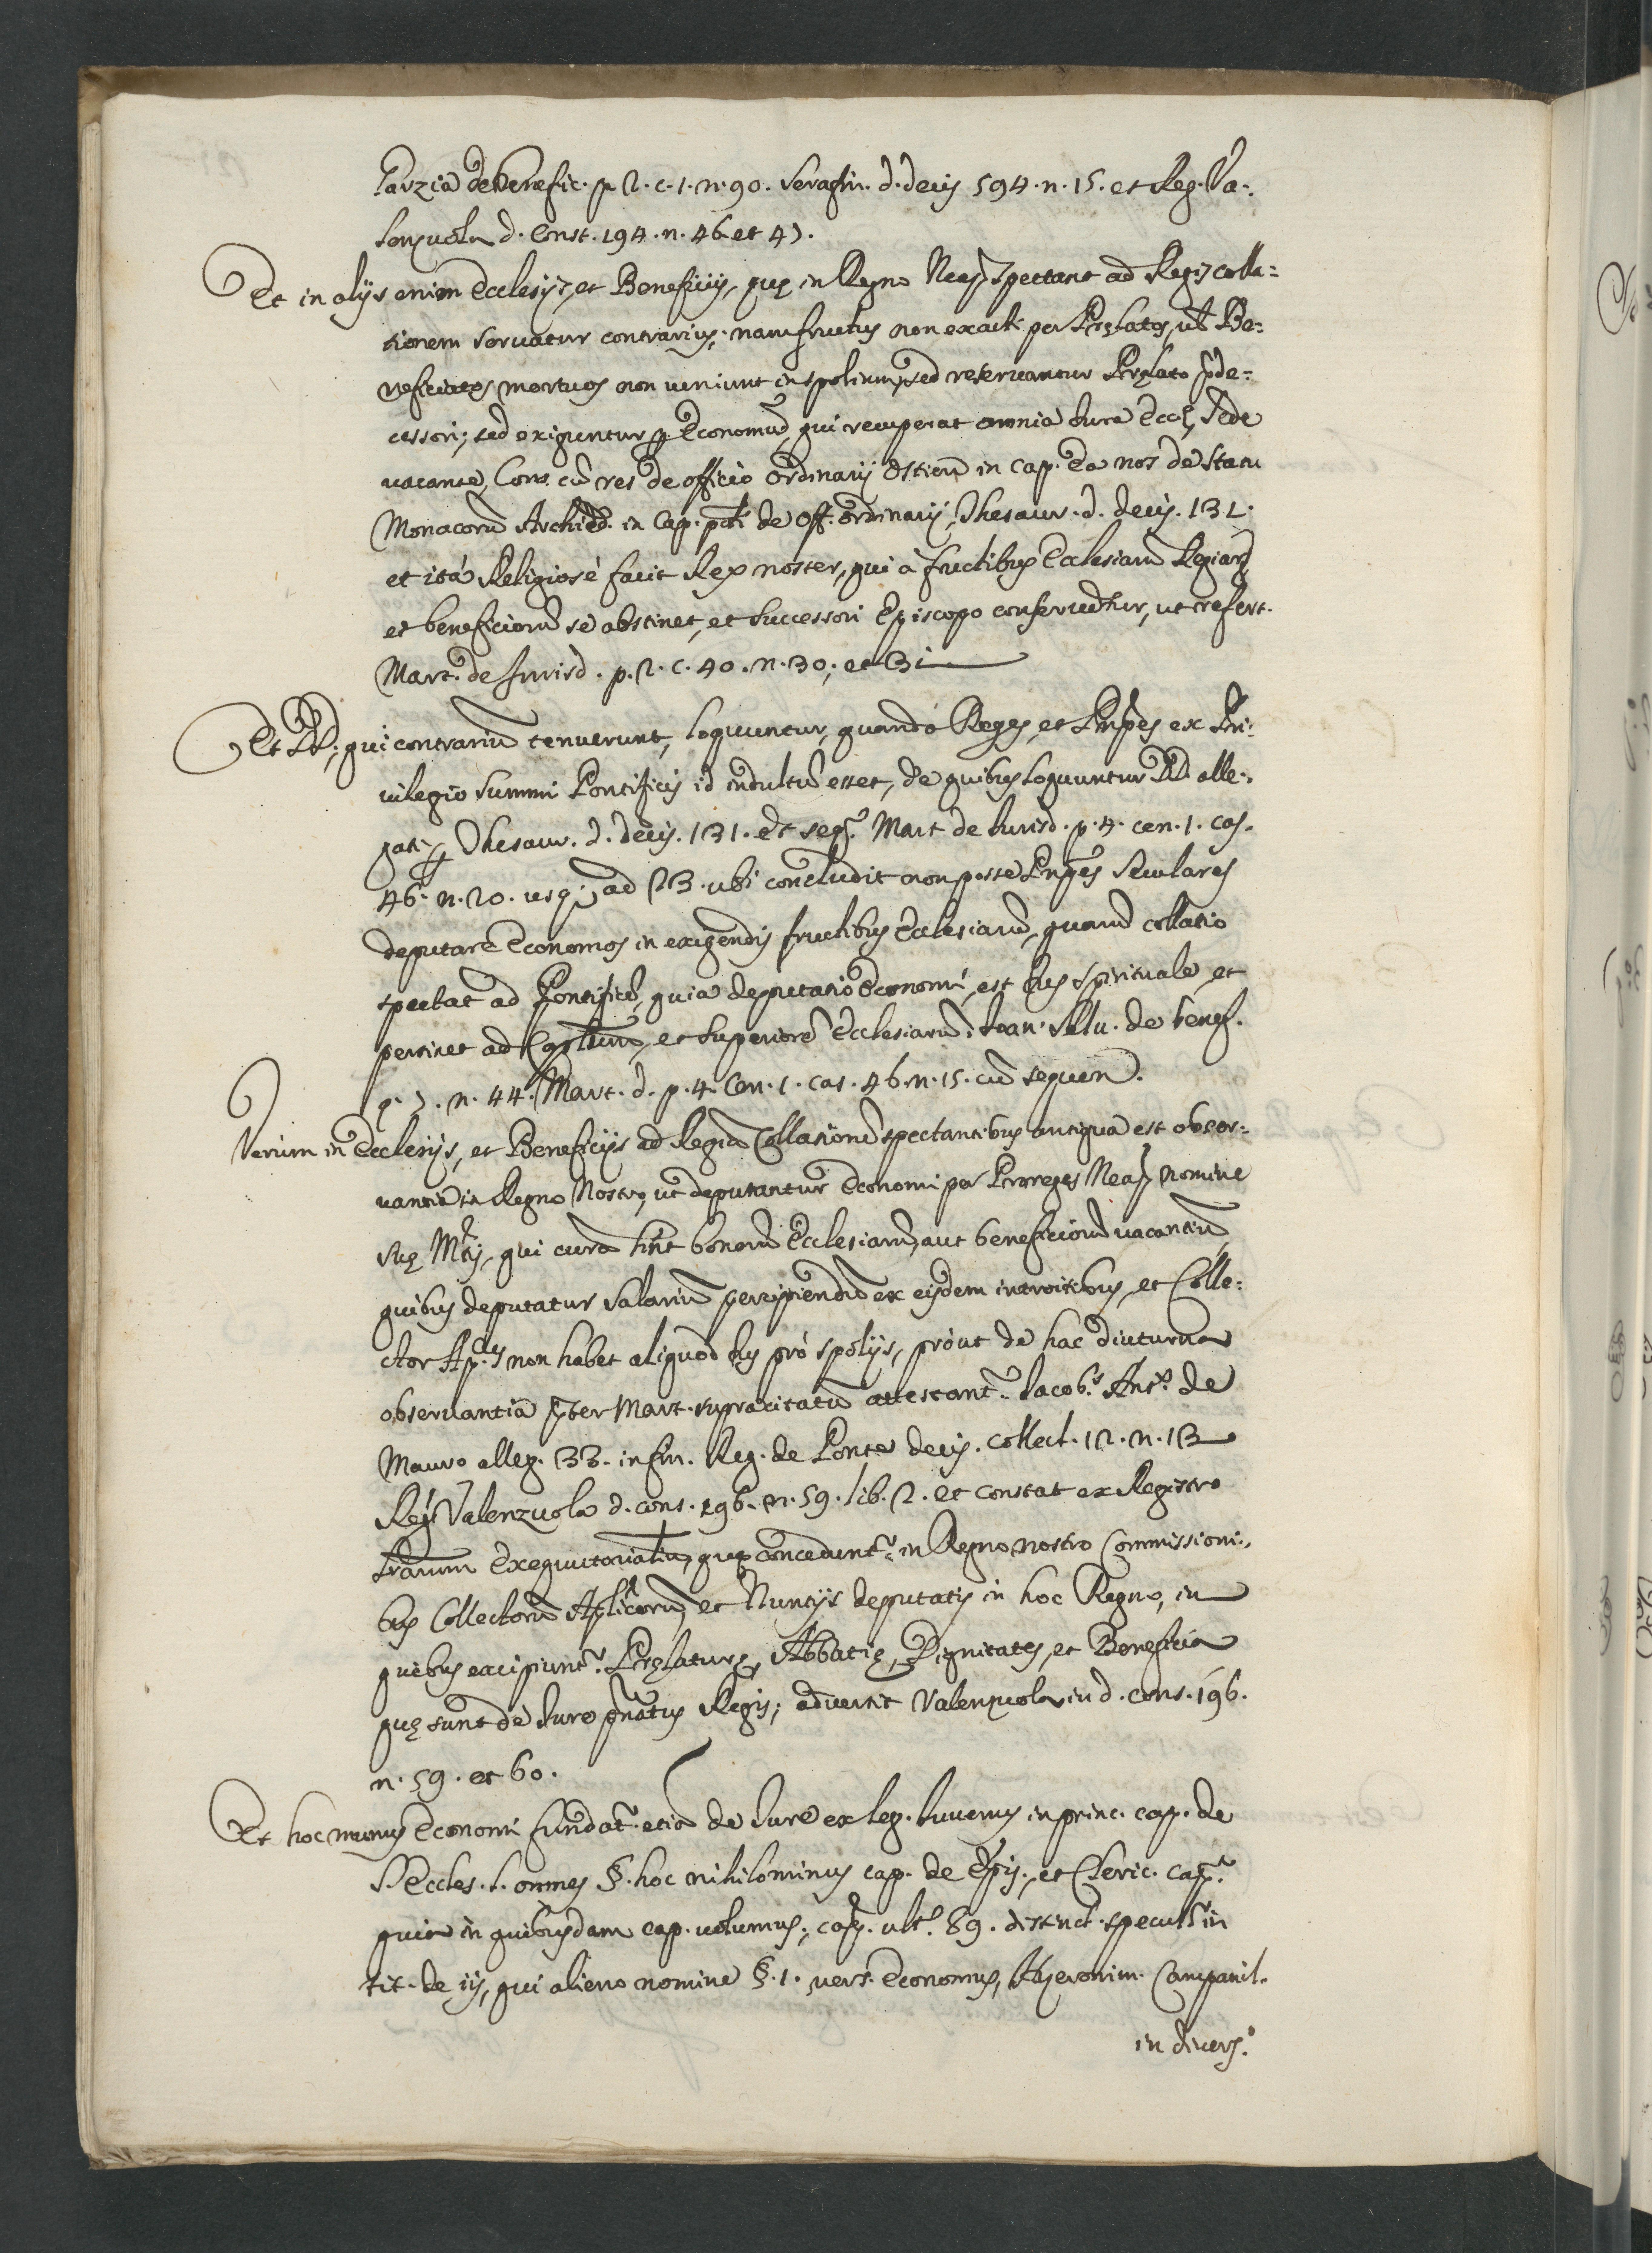 Garzia de Benefic. p. 2. c. 1. n. 90. Serafin. d. decis 594. n. 15. et Reg. Va-
lenzuola d. Const. 194. n. 46. et 47.
Et in alijs enim Ecclesijs, et Beneficijs, quę in Regno Neap. spectant ad Regis colla=
tionem seruatur contrarius; nam fructus non exacti per Prelatos, ul' Be=
neficiatos mortuos non ueniunt in spolium, sed reseruantur Prelato sude=
cessori; sed exiguntur p Economũ, qui recuperat omnia Iura Eccl. Sede
uacante, Cons. cũ res de officio Ordinarij Ostien. in cap. Ea nos de Statu
Monacorũ Archid. in Cap. de Off. ordinarij, Thesaur. d. decis. 131.
et ità Religiosè facit Rex noster, qui à fructibus Ecclesiarũ Regiarũ
et beneficiorũ se abstinet, et successori Episcopo conseruãtur, ut refert.
Mart. de Iurisd. p. 2. c. 40. n. 30; et 31
Et DD; qui contrariũ tenuerunt, loquuntur, quando Reges, et Prñpes ex Pri-
uilegio Summi Pontificis id indultũ esset, de quibus loquuntur DD. alle-
gati p Thesaur. d. decis. 131. et seq. Mart de Iurisd. p. 4. cen. 1. cas.
46. n. 20. usq; ad 23. ubi concludit non posse Prñpes Seculares
deputare Economos in exigendis fructibus Ecclesiarũ, quarũ collatio
spectat ad Pontificẽ, quia deputatio Economi, est Ius spirituale, et
pertinet ad Cap̃lum, et superiorẽ Ecclesiarũ: Ioan. Selu. de benef.
q. 7. n. 44. Mart. d. p. 4. Cen. 1. cas. 46. n. 15. cũ sequen.
Verùm in Ecclesijs, et Beneficijs ad Regiã Collationẽ spectantibus antiqua est obser-
uantia in Regno Nostro, ut deputantur Economi per Proreges Neap. nomine
Suę Mtis, qui curã hñt bonorũ Ecclesiarũ, aut beneficiorũ uacantiũ,
quibus deputatur salariũ percipiendũ ex eisdem introitibus, et Colle=
ctor Ap.cus non habet aliquod Ius prò spolijs, pròut de hac diuturna
obseruantia pter Mart. supracitatũ attestant.r Iacob.s Ant.s de
Mauro alleg. 33. in fin. Reg. de Ponte decis. collect. 12. n. 13
Reg. Valenzuola d. cons. 196. n. 59. lib. 2. et constat ex Registro
Lrarum Exequutorialiũ, quę concedunt.r in Regno nostro Commissioni-
bus Collectorũ Aplicorũ, et Nuntijs deputatis in hoc Regno, in
quibus excipiunt.r Prelaturę, Abbatię, Dignitates, et Beneficia
quę sunt de Iure pñatus Regis; aduertit Valenzuola in d. cons. 196.
n. 59. et 60.
Et hoc munus Economi fundat.r etiã de Iure ex leg. Iuuemus in princ. cap. de
S. Eccles. l. omnes §. hoc nihilominus cap. de Epis., et Cleric. cap.
quia in quibusdam cap. uolumus; cap. ult. 89. distinct. specul. in
tit. de ijs, qui alieno nomine §. 1. uers. Economus, Hyeronim. Campanil.
in diuers.